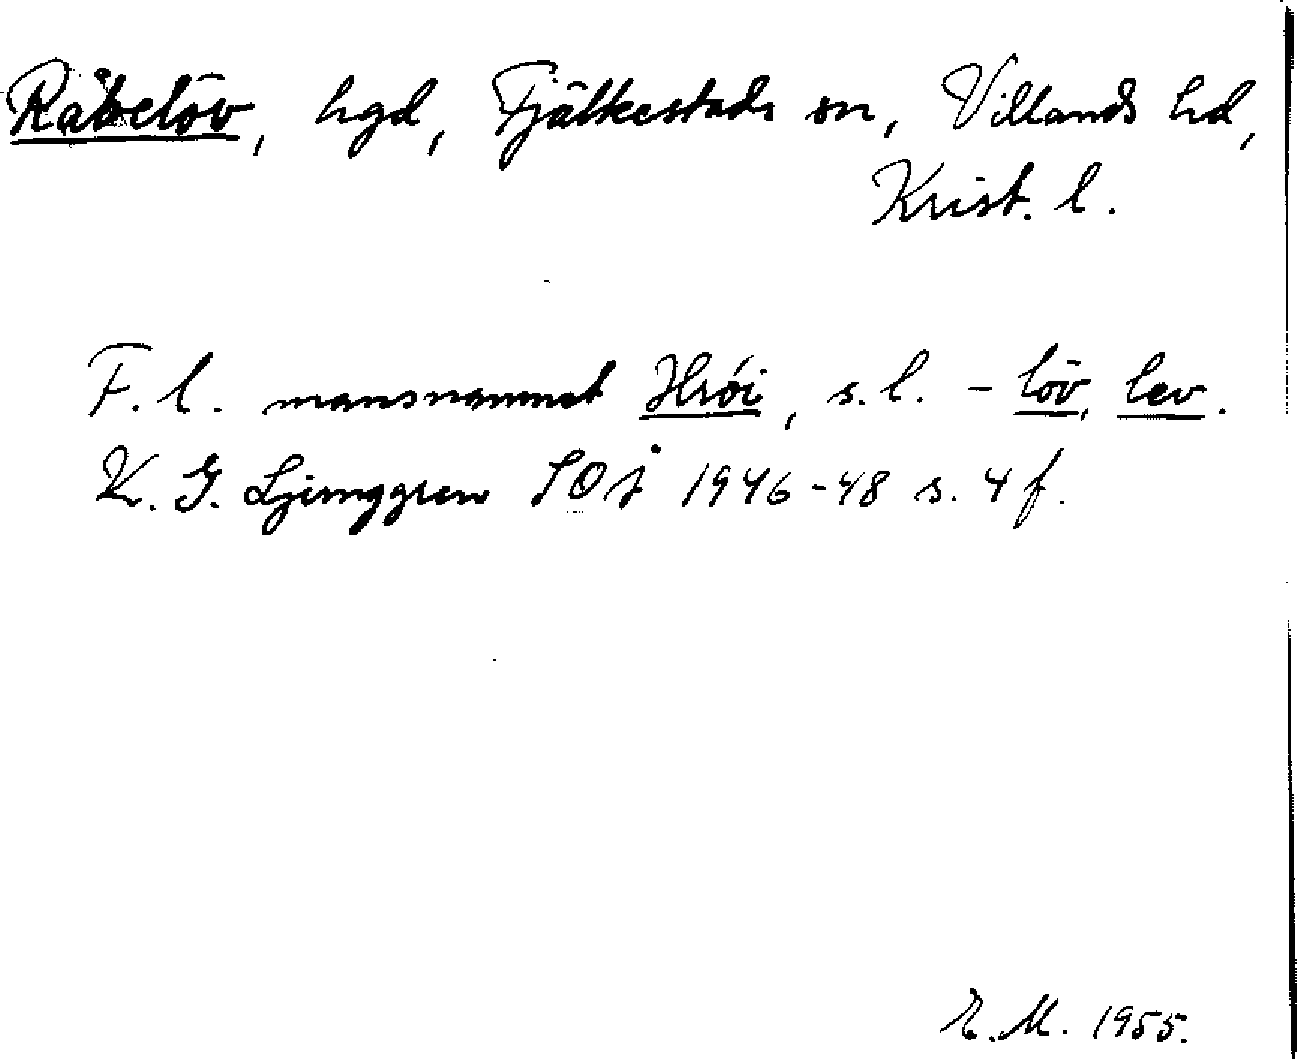 Råbelöv, hgd, Fjälkestads sn, Villands hd,
Krist. l.
F. l. mansnamnet Hrói, s. l. - löv, lev.
K. G. Ljunggren SOÅ 1946-48 s. 4 f.
E. M. 1955.